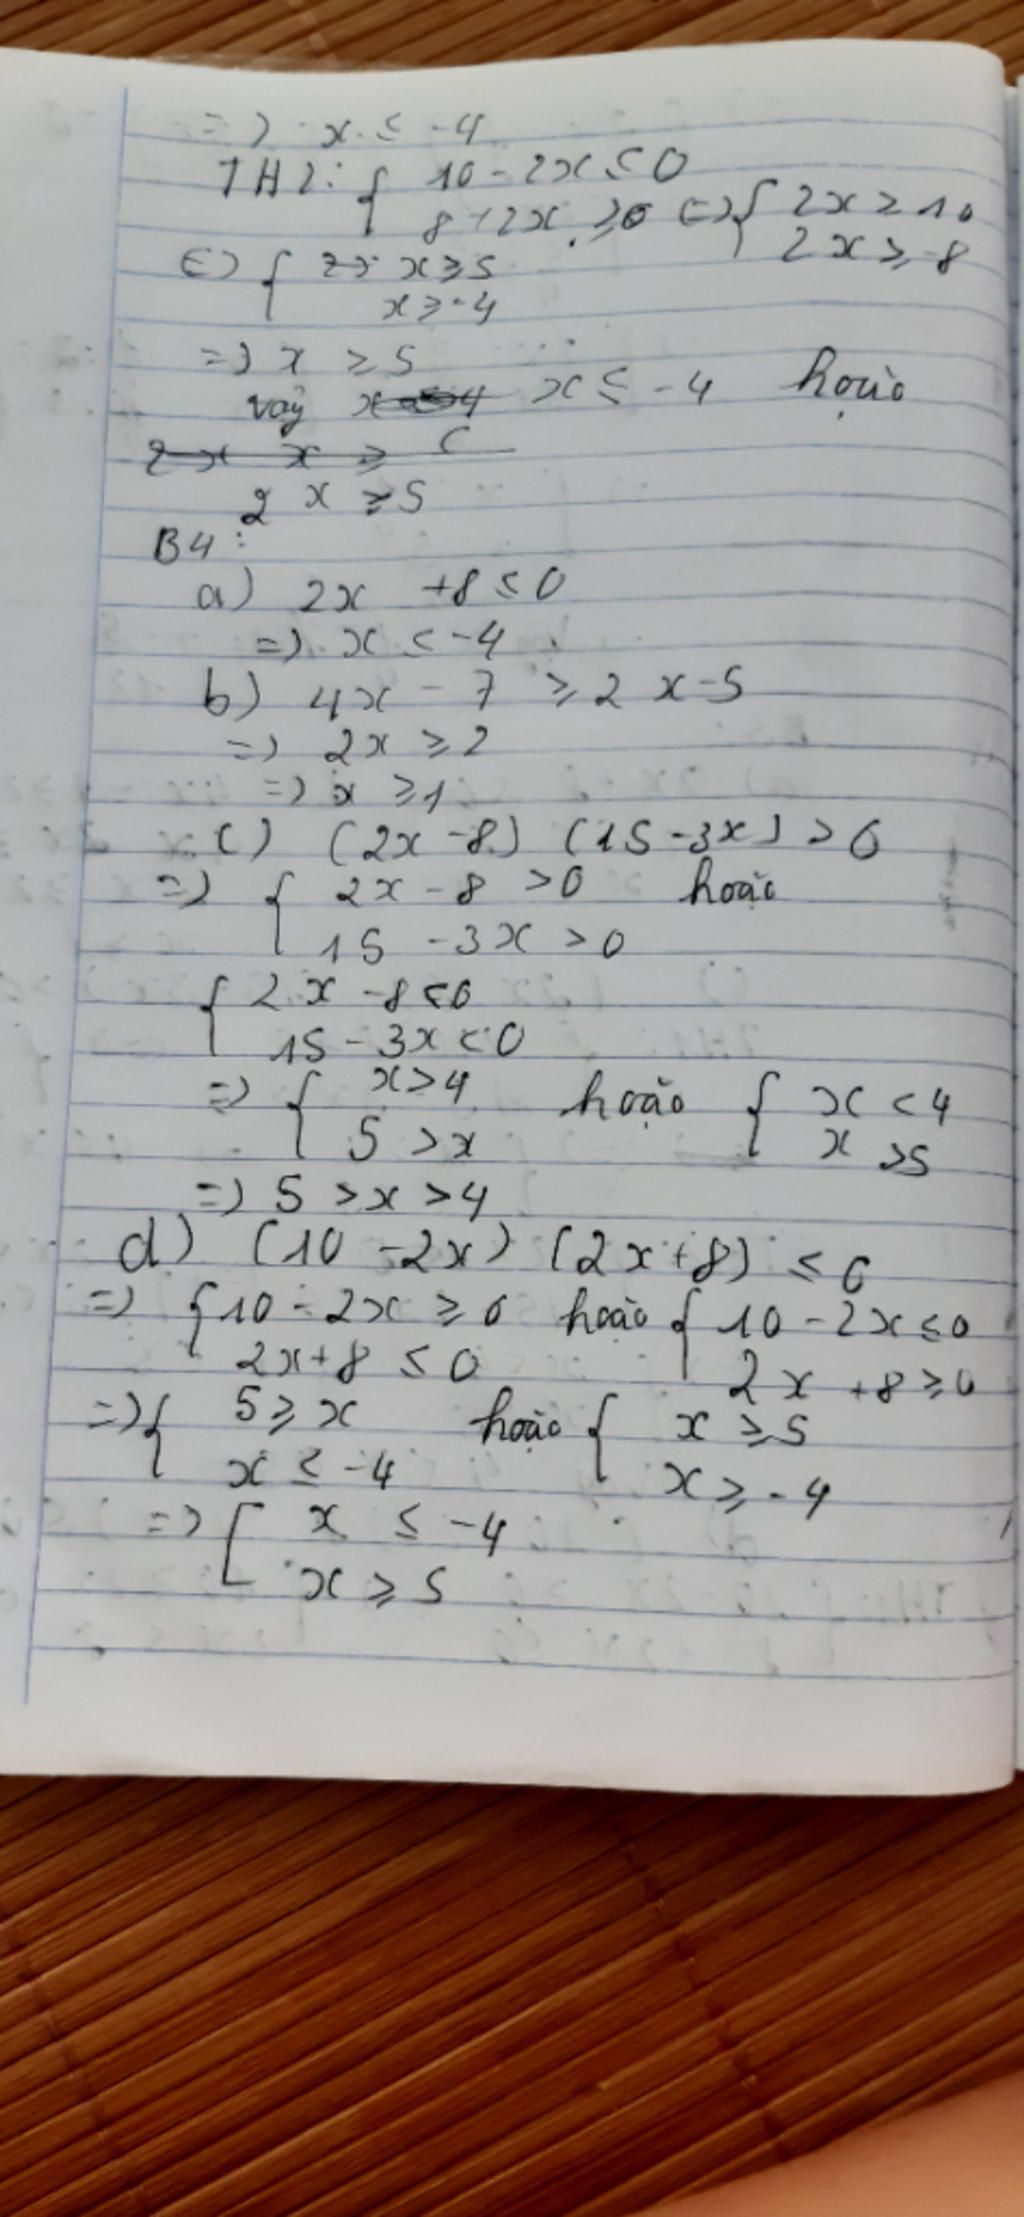 =) x ≤ -4
TH2: { 10 - 2x ≤ 0
8 + 2x ≥ 0 (=) { 2x ≥ 10
2x ≥ -8
(=) { x ≥ 5
x ≥ -4
=) x ≥ 5
vậy x ≤ -4 hoặc
x ≥ 5
B4:
a) 2x + 8 ≤ 0
=) x ≤ -4
b) 4x - 7 ≥ 2x - 5
=) 2x ≥ 2
=) x ≥ 1
c) (2x - 8) (15 - 3x) > 0
=) { 2x - 8 > 0 hoặc
15 - 3x > 0
{ 2x - 8 < 0
15 - 3x < 0
=) { x > 4 hoặc { x < 4
5 > x x > 5
=) 5 > x > 4
d) (10 - 2x) (2x + 8) ≤ 0
=) { 10 - 2x ≥ 0 hoặc { 10 - 2x ≤ 0
2x + 8 ≤ 0 2x + 8 ≥ 0
=) { 5 ≥ x hoặc { x ≥ 5
x ≤ -4 x ≥ -4
=) [ x ≤ -4
x ≥ 5